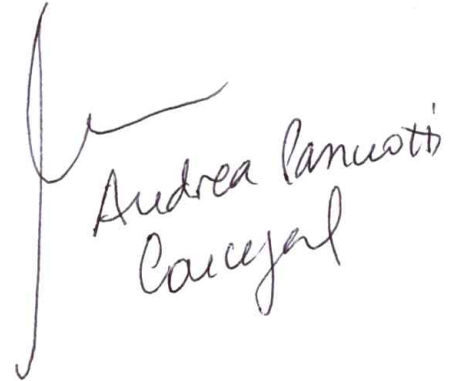 Andrea Pannuoti
Concejal